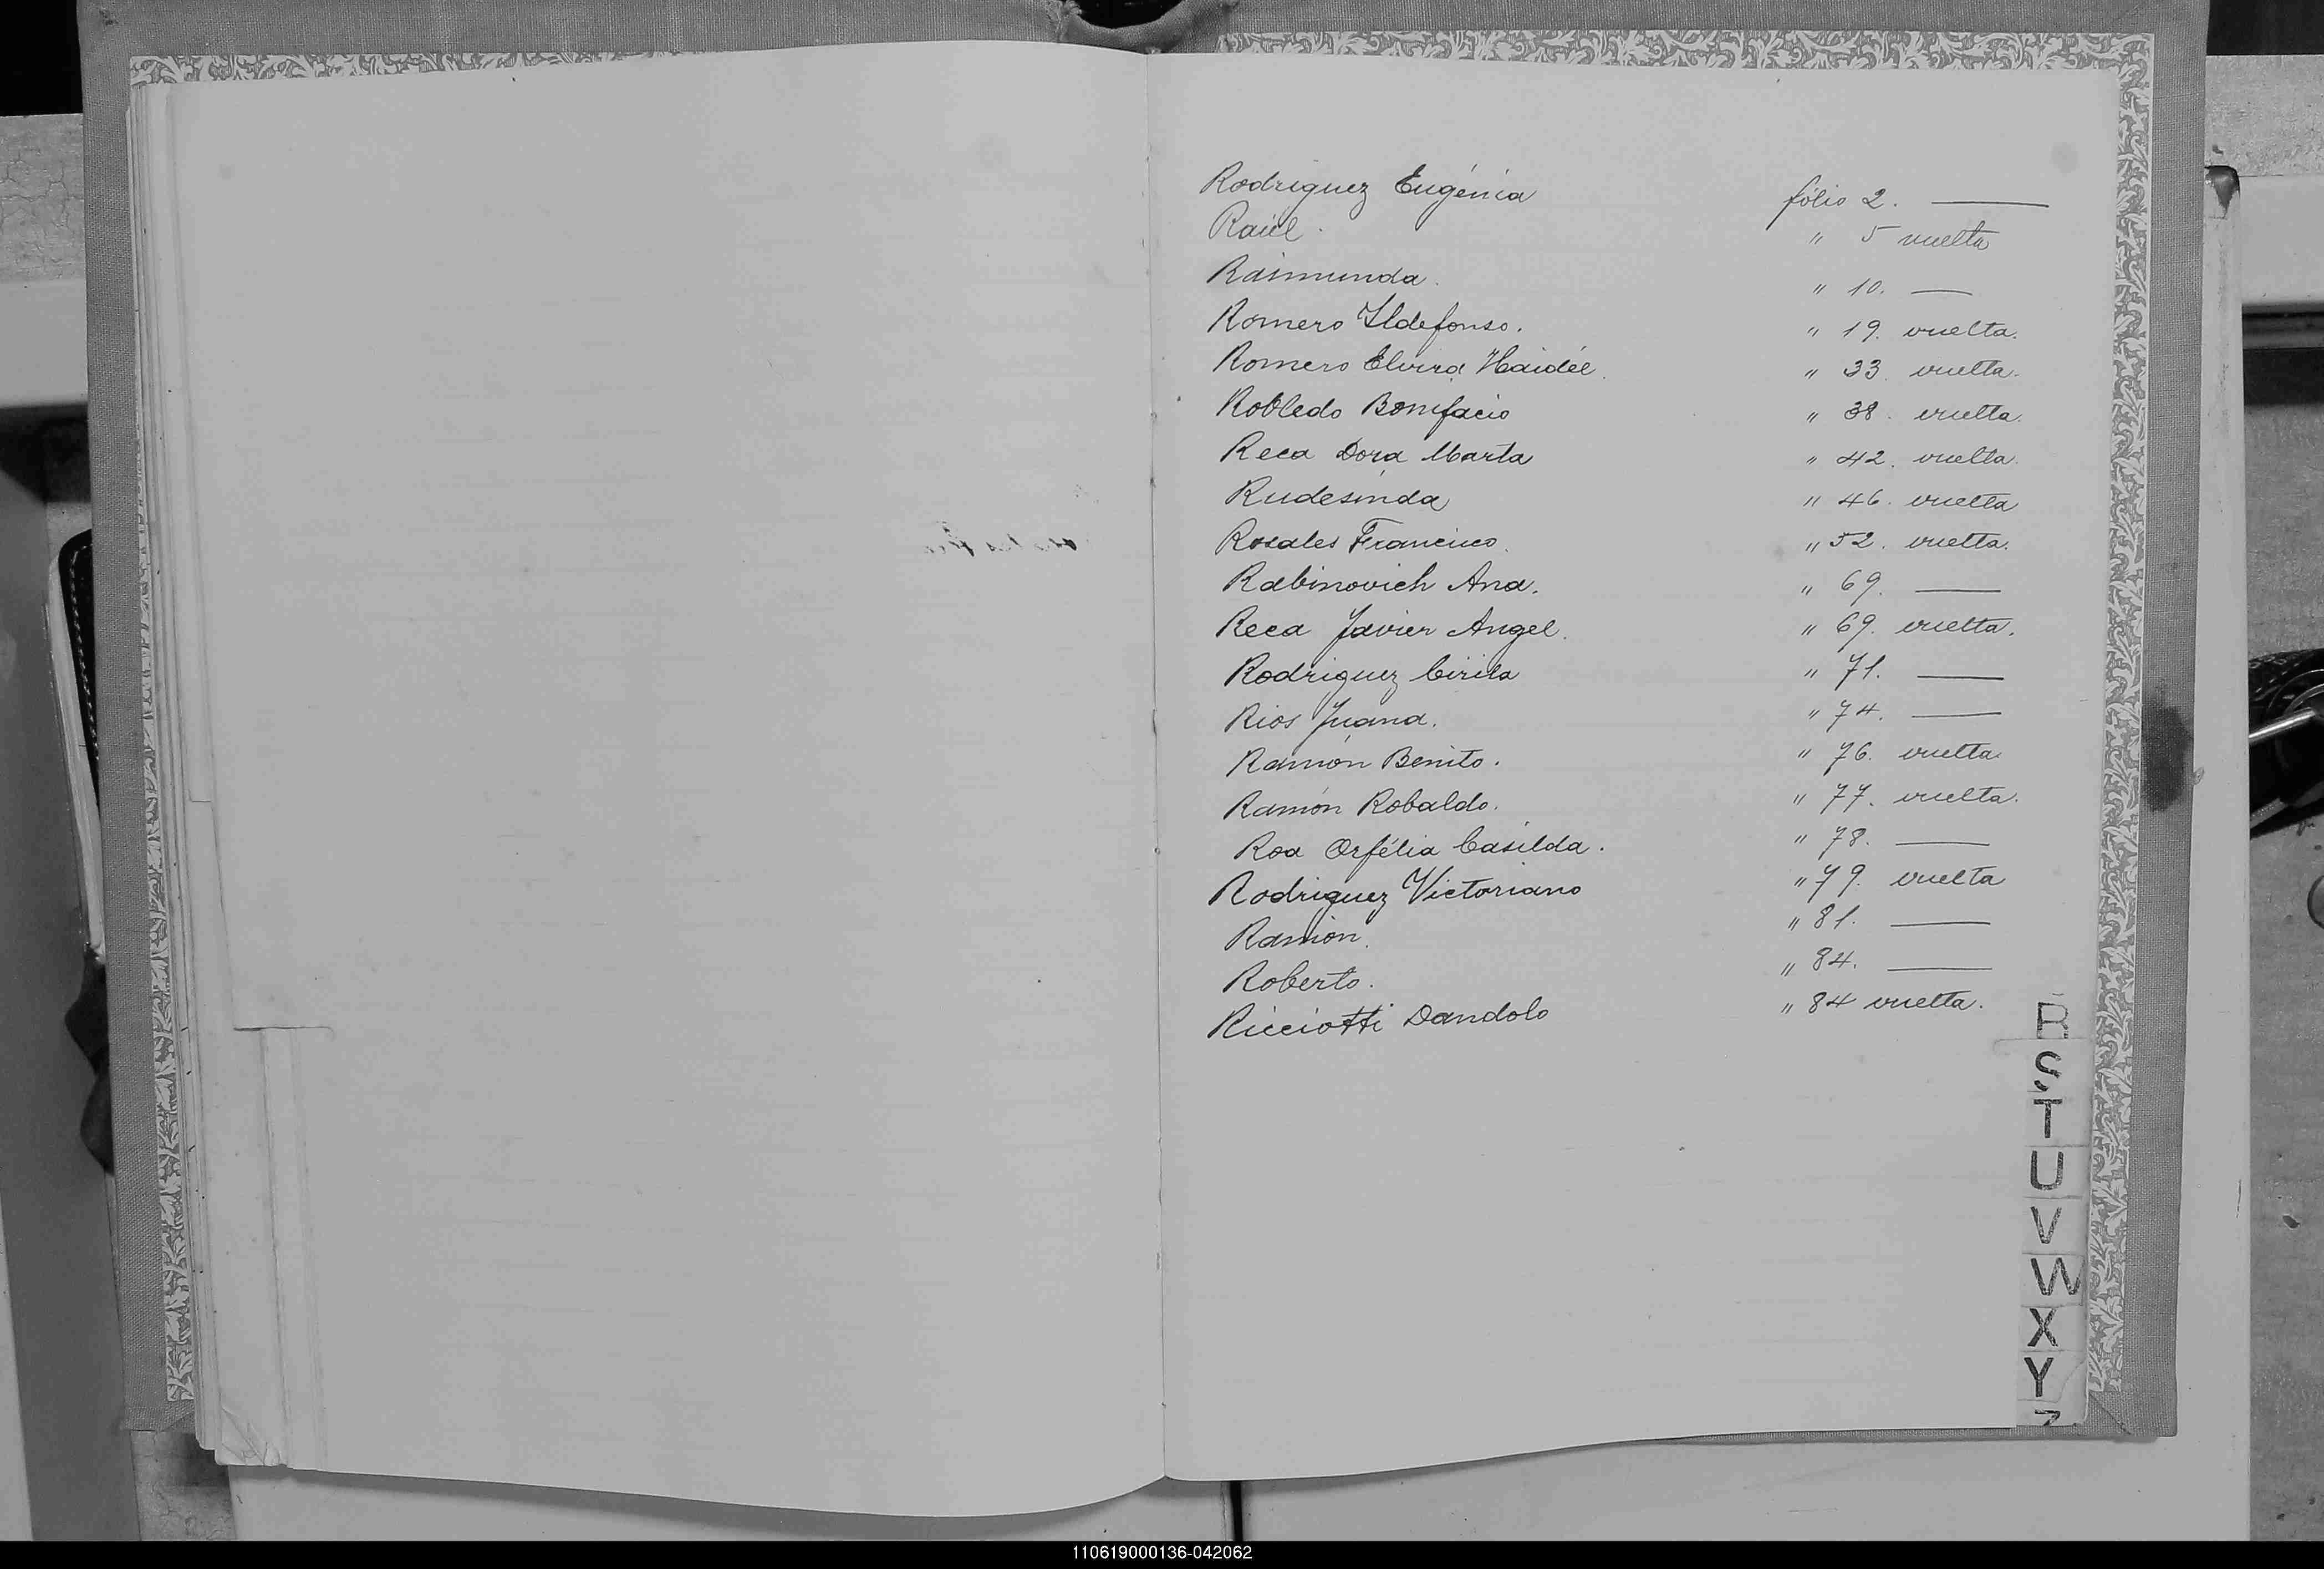 Rodriguez Eugénia fólio 2. ——
Raúl. " 5 vuelta
Raimunda. " 10. ——
Romero Ildefonso. " 19. vuelta.
Romero Elvira Haidée. " 33. vuelta.
Robledo Bonifacio " 38. vuelta.
Reca Dora Marta " 42. vuelta.
Rudesinda " 46. vuelta
Rosales Francisco. " 52. vuelta.
Rabinovich Ana. " 69. ——
Reca Javier Angel. " 69. vuelta.
Rodriguez Cirila " 71. ——
Rios Juana. " 74. ——
Ramón Benito. " 76. vuelta.
Ramón Robaldo. " 77. vuelta.
Roa Orfélia Casilda. " 78. ——
Rodriguez Victoriano " 79. vuelta
Ramón. " 81. ——
Roberto. " 84. ——
Ricciotti Dandolo " 84 vuelta.
R
S
T
U
V
W
X
Y
Z
110619000136-042062